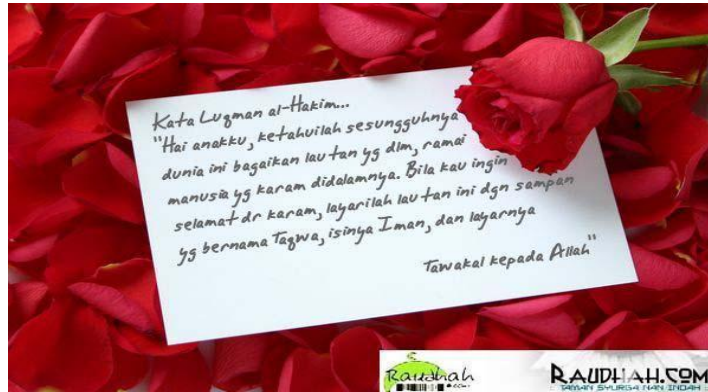 Kata Luqman al-Hakim...
"Hai anakku, ketahuilah sesungguhnya
dunia ini bagaikan lautan yg dlm, ramai
manusia yg karam didalamnya. Bila kau ingin
selamat dr karam, layarilah lautan ini dgn sampan
yg bernama Taqwa, isinya Iman, dan layarnya
Tawakal kepada Allah"
Raudhah
.com
RAUDHAH.COM
TAMAN SYURGA NAN INDAH